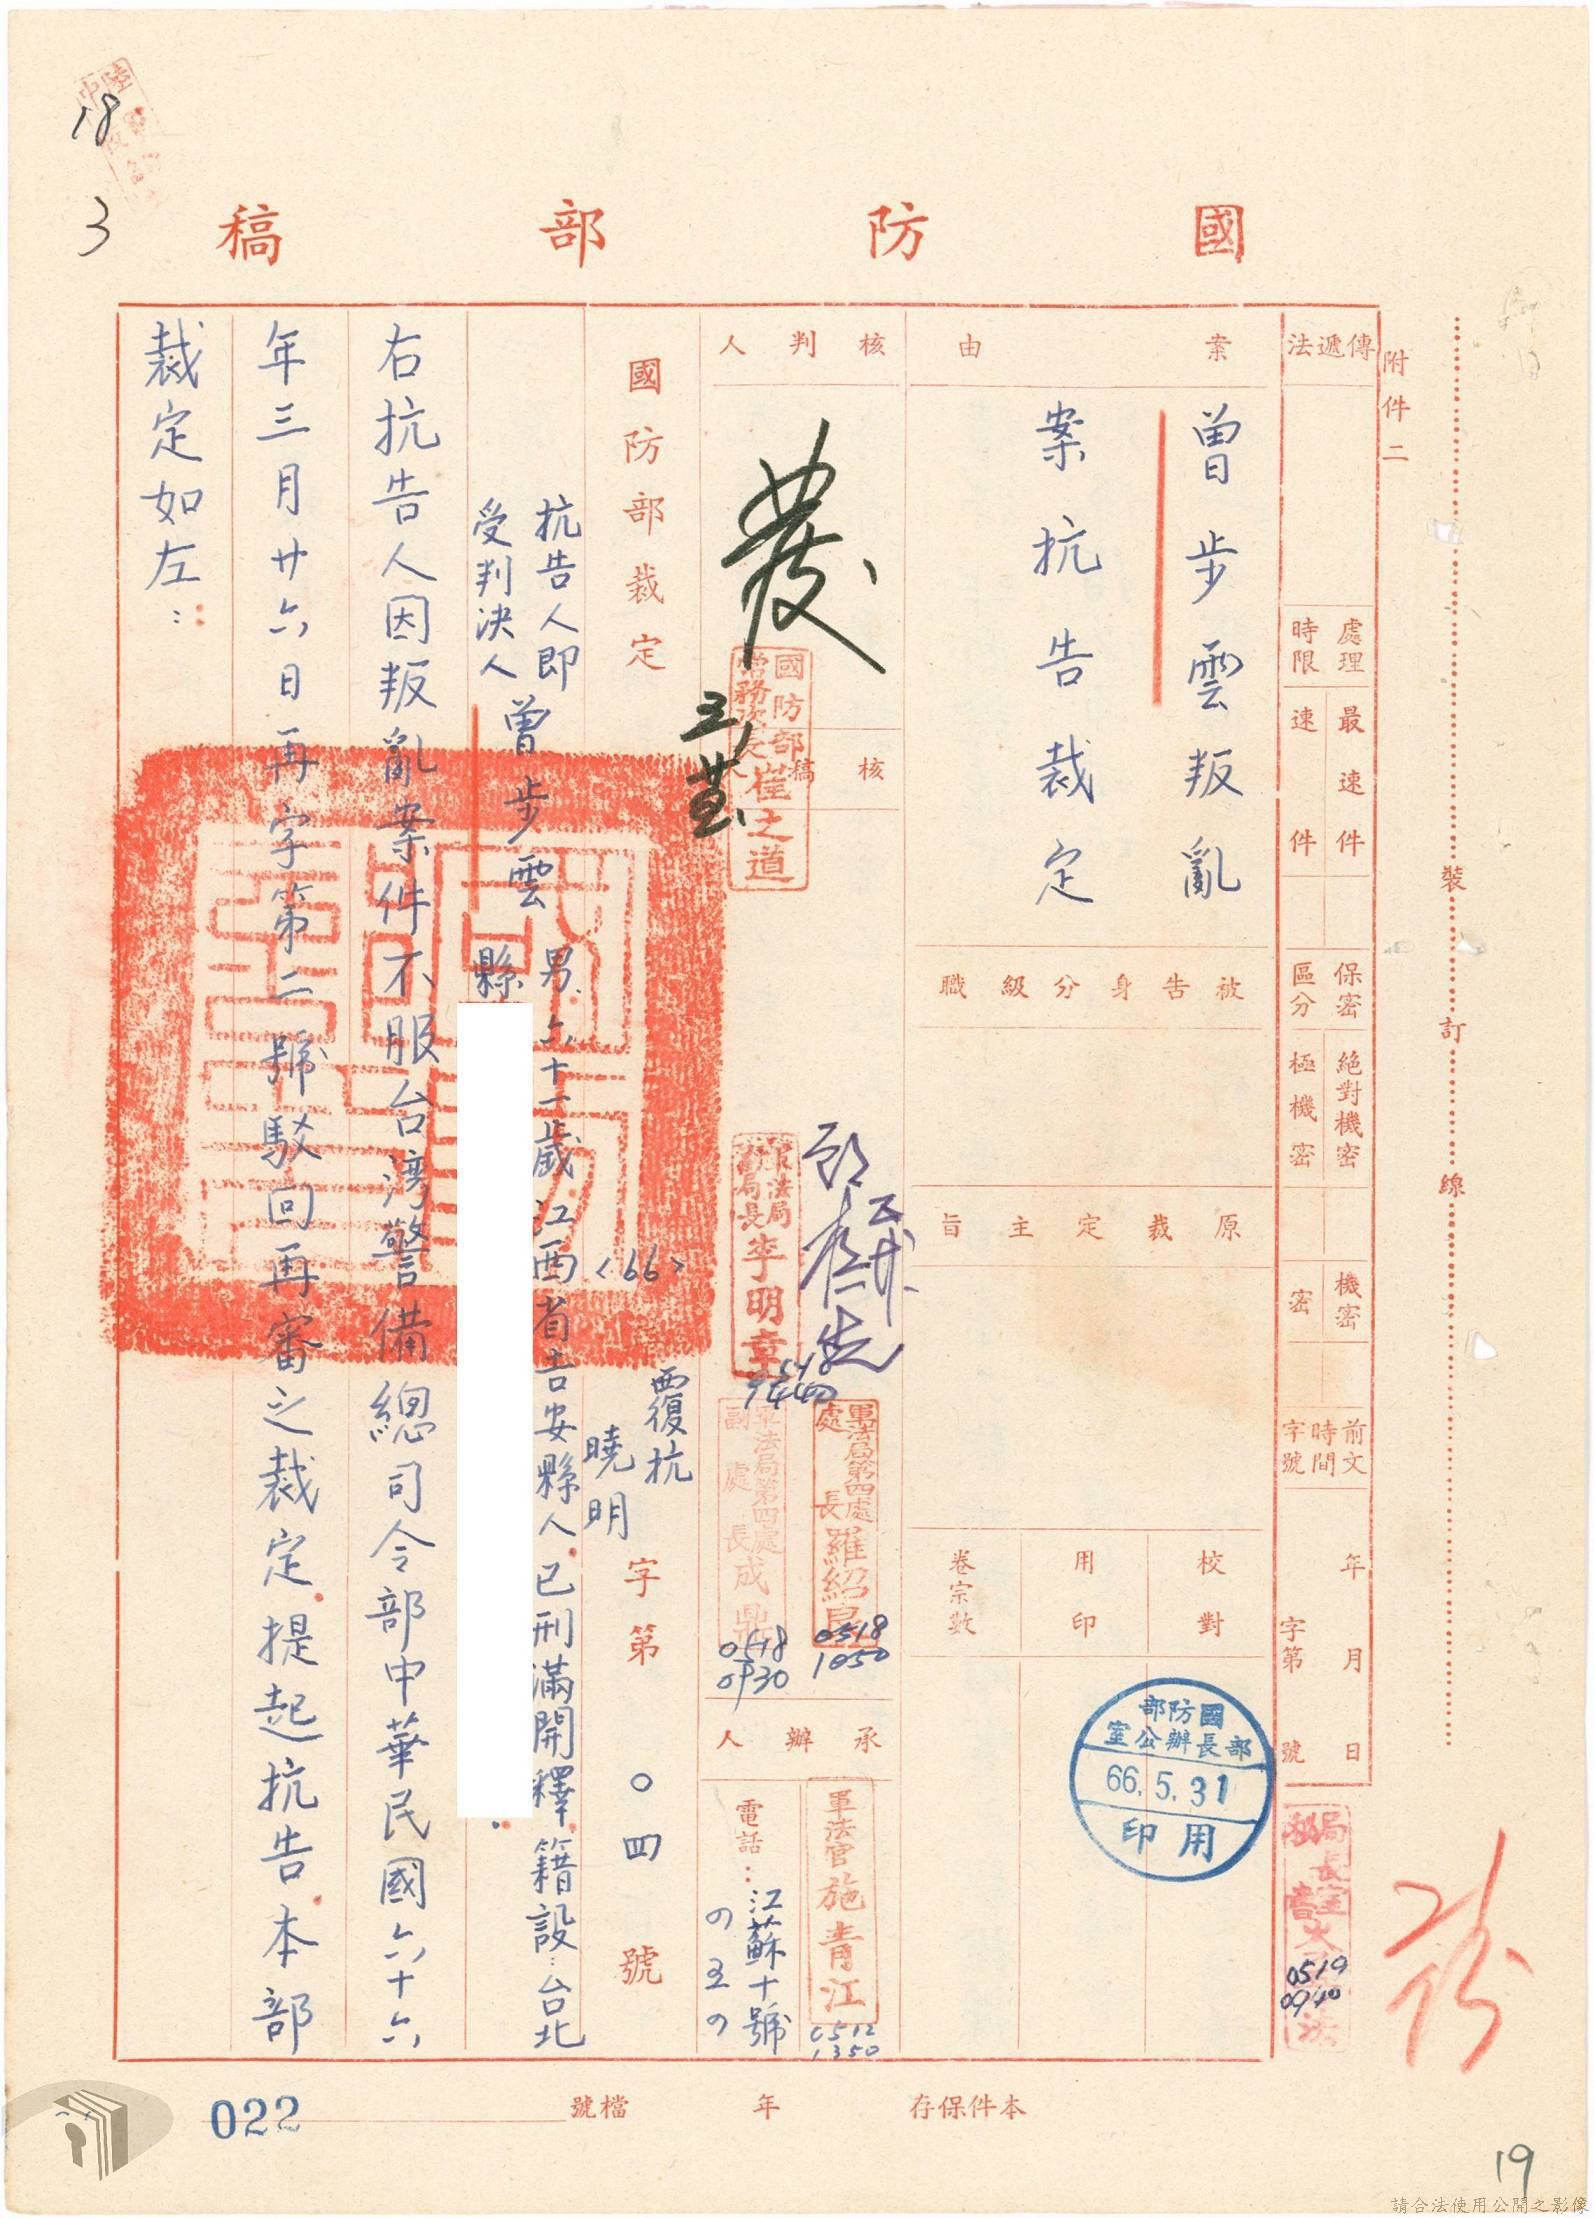 18
3
國防部稿
附件二
裝訂線
傳遞法
處理時限
最速件
速件
保密區分
絕對機密
極機密
機密
密
前文時間字號
年月日
字第號
案由
曾步雲叛亂
案抗告裁定
被告身分級職
原裁定主旨
校對
用印
卷宗數
國防部
部長辦公室
66.5.31
用印
0519
0940
核判人
發
國防部
常務次長崔之道
核稿人
軍法局
副局長李明章
軍法局第四處
處長羅紹良
0518
1050
軍法局第四處
副處長成鼎
0518
0930
承辦人
軍法官施青江
0512
1350
電話：
江蘇十號
國防部裁定
<66>
覆抗
曉明
字第〇四號
抗告人即
受判決人
曾步雲
男、六十一歲江西省吉安縣人已刑滿開釋籍設：台北
縣
右抗告人因叛亂案件不服台湾警備總司令部中華民國六十六
年三月廿六日再字第二號駁回再審之裁定提起抗告本部
裁定如左：
本件保存
年
檔號
022
19
請合法使用公開之影像